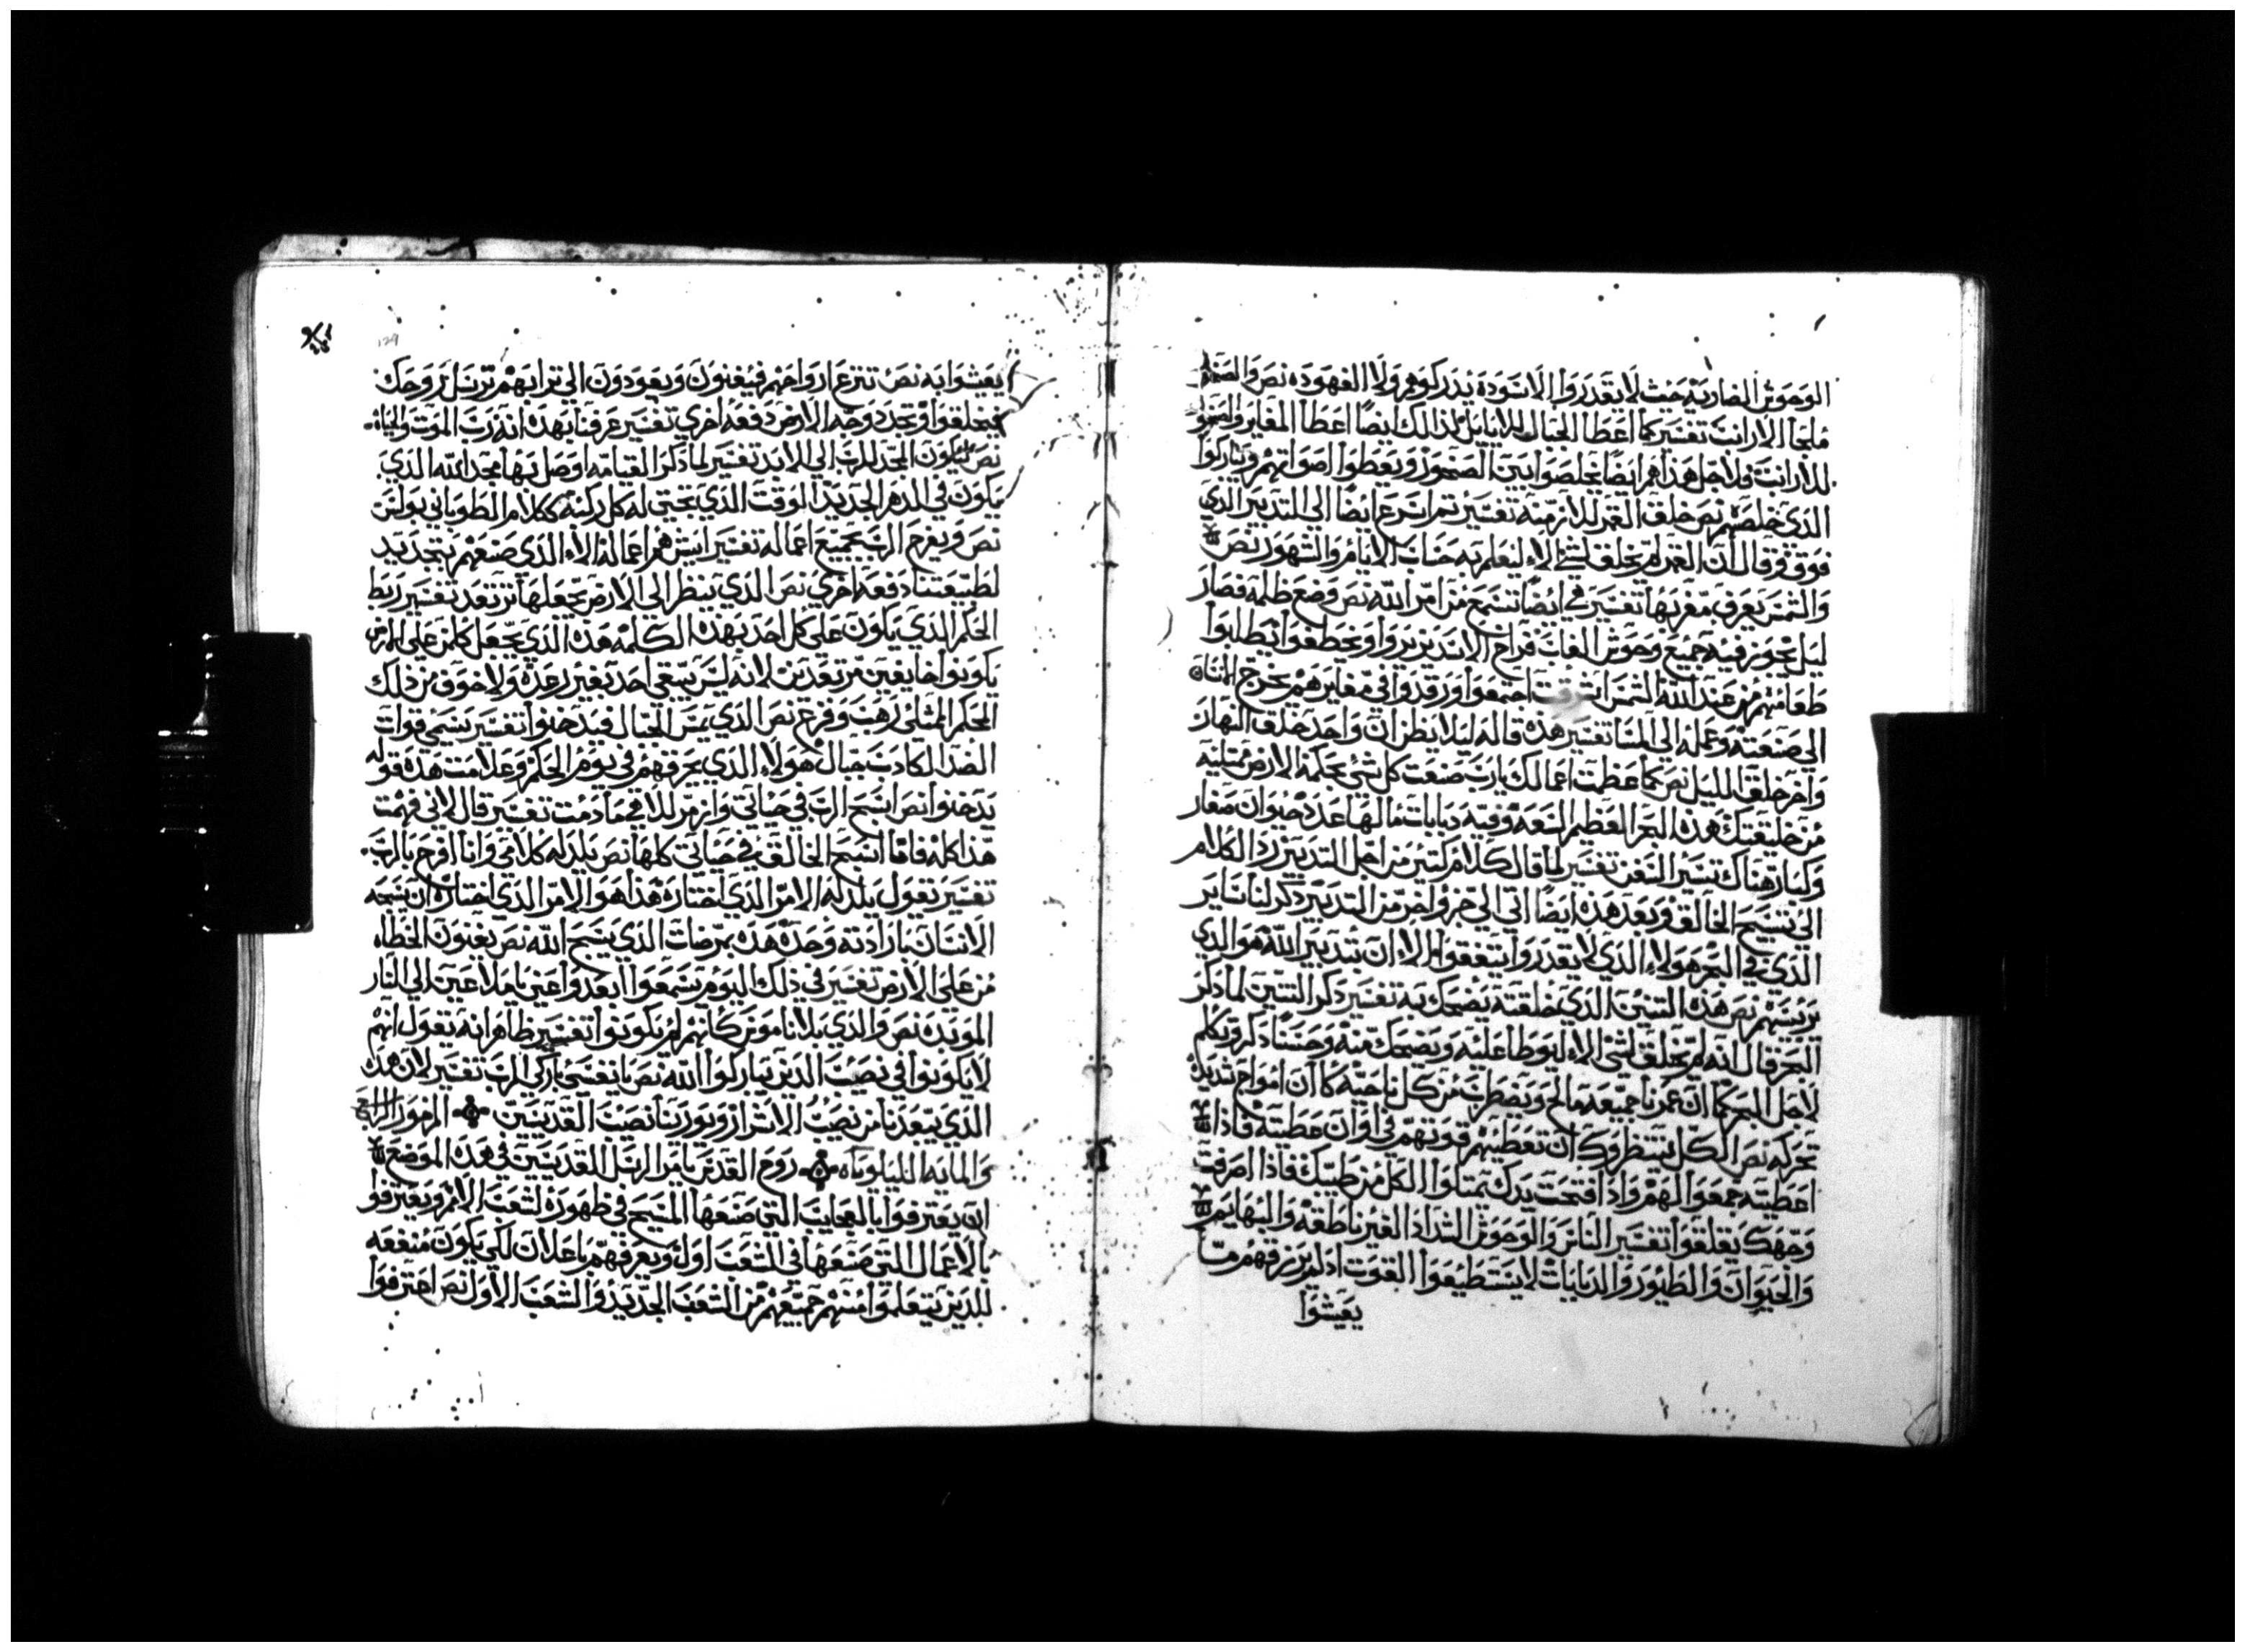 الوحوش الضاريه حيث لا يقدروا الاسوده يدركوهم ولا الفهوده نص والصخره
ملجأ الارانب تفسير كما اعطا الجبال للايايل كذالك ايضا اعطا المغاير والصخور
للارانب فلاجل هذا هم ايضا يخلصوا بين الصخور ويعطوا اصواتهم ويباركوا
الذي خلصهم نص خلق القمر للازمنه تفسير تم اسرع ايضا الى التدبير الذي
فوق وقال ان القمر لم يخلق لشي الا ليعلم به حساب الايام والشهور نص
والشمس يعرف مغربها تفسير في ايضا تسمع من امر الله نص وضع ظلمه فصار
ليل يجوز فيه جميع وحوش الغاب فراخ الاسد يزيروا ويخطفوا يطلبوا
طعامهم من عند الله الشمس اشرقت اجتمعوا ورقدوا في مغايرهم يخرج الانسان
الى صنعته وعمله الى المسا تفسير هذه قاله ليلا يظن ان واحد خلق النهار
واخر خلق الليل نص كما عظمت اعمالك يارب صنعت كل شي بحكمه الارض ممتليه
من خليقتك هذه البحر العظيم السعه وفيه دبابات مالها عدد حيوان صغار
وكبار هناك تسير السفن تفسير لما قال كلام كثير من اجل التدبير رد الكلام
الى تسبيح الخالق وبعد هذه ايضا اتى الى جزو اخر من التدبير ذكر لنا ساير
الذي في البحر هولاء الذي لا يقدروا يتفقوا الا ان تدبير الله هو الذي
يريسهم نص هذه التنين الذي خلقته يضحك به تفسير ذكر التنين لما ذكر
البحر قال انه لم يخلق لشى الا ليوطا عليه ويضحك منه وحسنا ذكر وتكلم
لاجل البحر كما ان عمرنا جميعه مالح ويضطرب من كل ناحيه كما ان امواج تديك
تحركه نص الكل ينتظروك ان تعطيهم قوتهم في اوان عطيته فاذا
اعطيته جمعوا لهم واذا فتحت يدك يمتلوا الكل من طيبك فاذا صرفت
وجهك يقلقوا تفسير الناس والوحوش الشداد الغير ناطقه والبهايم
والحيوان والطيور والدبابات لا يستطيعوا القوت اذ لم يرزقهم مما
يعيشوا
يعيشوا به نص تنزع ارواحهم فيفنون ويعودون الى ترابهم ترسل روحك
فيخلقوا وتجدد وجه الارض دفعه اخرى تفسير عرفنا بهذه انه رب الموت والحياه
نص ليكون المجد للرب الى الابد تفسير لما ذكر القيامه اوصل بها مجد الله الذي
يكون في الدهر الجديد الوقت الذي تجثى له كل ركبه ككلام الطوباني بولس
نص ويفرح الرب بجميع اعماله تفسير ايش هم اعماله الا الذي صنعهم بتجديد
لطبيعتنا دفعه اخرى نص الذي ينظر الى الارض يجعلها ترتعد تفسير ربط
الحكم الذي يكون على كل احد بهذه الكلمه هذه الذي يجعل كلمن على الارض
يكونوا خايفين مرتعدين لانه ليس يبقى احد بغير رعده ولا خوف من ذلك
الحكم الممتلى رهب وفزع نص الذي يمس الجبال فيدخنوا تفسير يسمى قوات
الضد الكادب جبال هولاء الذي يحرقهم في يوم الحكم وعلامت هذه قوله
يدخنوا نص اسبح الرب في حياتي وازمر لالاهي مادمت تفسير قال لاني فهمت
هذا كله فانا اسبح الخالق في حياتي كلها نص يلذ له كلامي وانا افرح بالرب
تفسير تقول يلذ له الامر الذي اختاره هذا هو الامر الذي اختاره ان يسبحه
الانسان بارادته وحده هذه بمرضات الذي يسبح الله نص يفنون الخطاه
من على الارض تفسير في ذلك اليوم يسمعوا ابعدوا عني يا ملاعين الى النار
الموبده نص والذي بلا ناموس كانهم لم يكونوا تفسير ظاهر انه يقول انهم
لا يكونوا في نصيب الدين يباركوا الله نص يا نفسي باركي الرب تفسير لان هذك
الذي يبعدنا من نصيب الاشرار ويورتنا نصيب القديسين المزمور الرابع
والمايه الليلوياه روح القدس يامر الرسل القديسين في هذه الموضع
ان يعترفوا بالعجايب التي صنعها المسيح في ظهوره لشعب الامم ويعترفوا
بالاعمال التي صنعها في الشعب اولا ويعرفهم باعلان لكي يكون منفعه
للدين يتعلموا منهم جميعهم من الشعب الجديد والشعب الاول نص اعترفوا